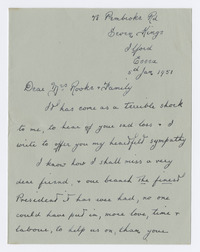 78 Pembroke Rd
Seven Kings
Ilford
Essex
5th Jan 1951
Dear Mrs Rooke & Family
It has come as a terrible shock
to me, to hear of your sad loss & I
write to offer you my heartfelt sympathy
I know how I shall miss a very
dear friend, & our branch the finest
President it has ever had, no one
could have put in, more love, time &
labour, to help us on, than your